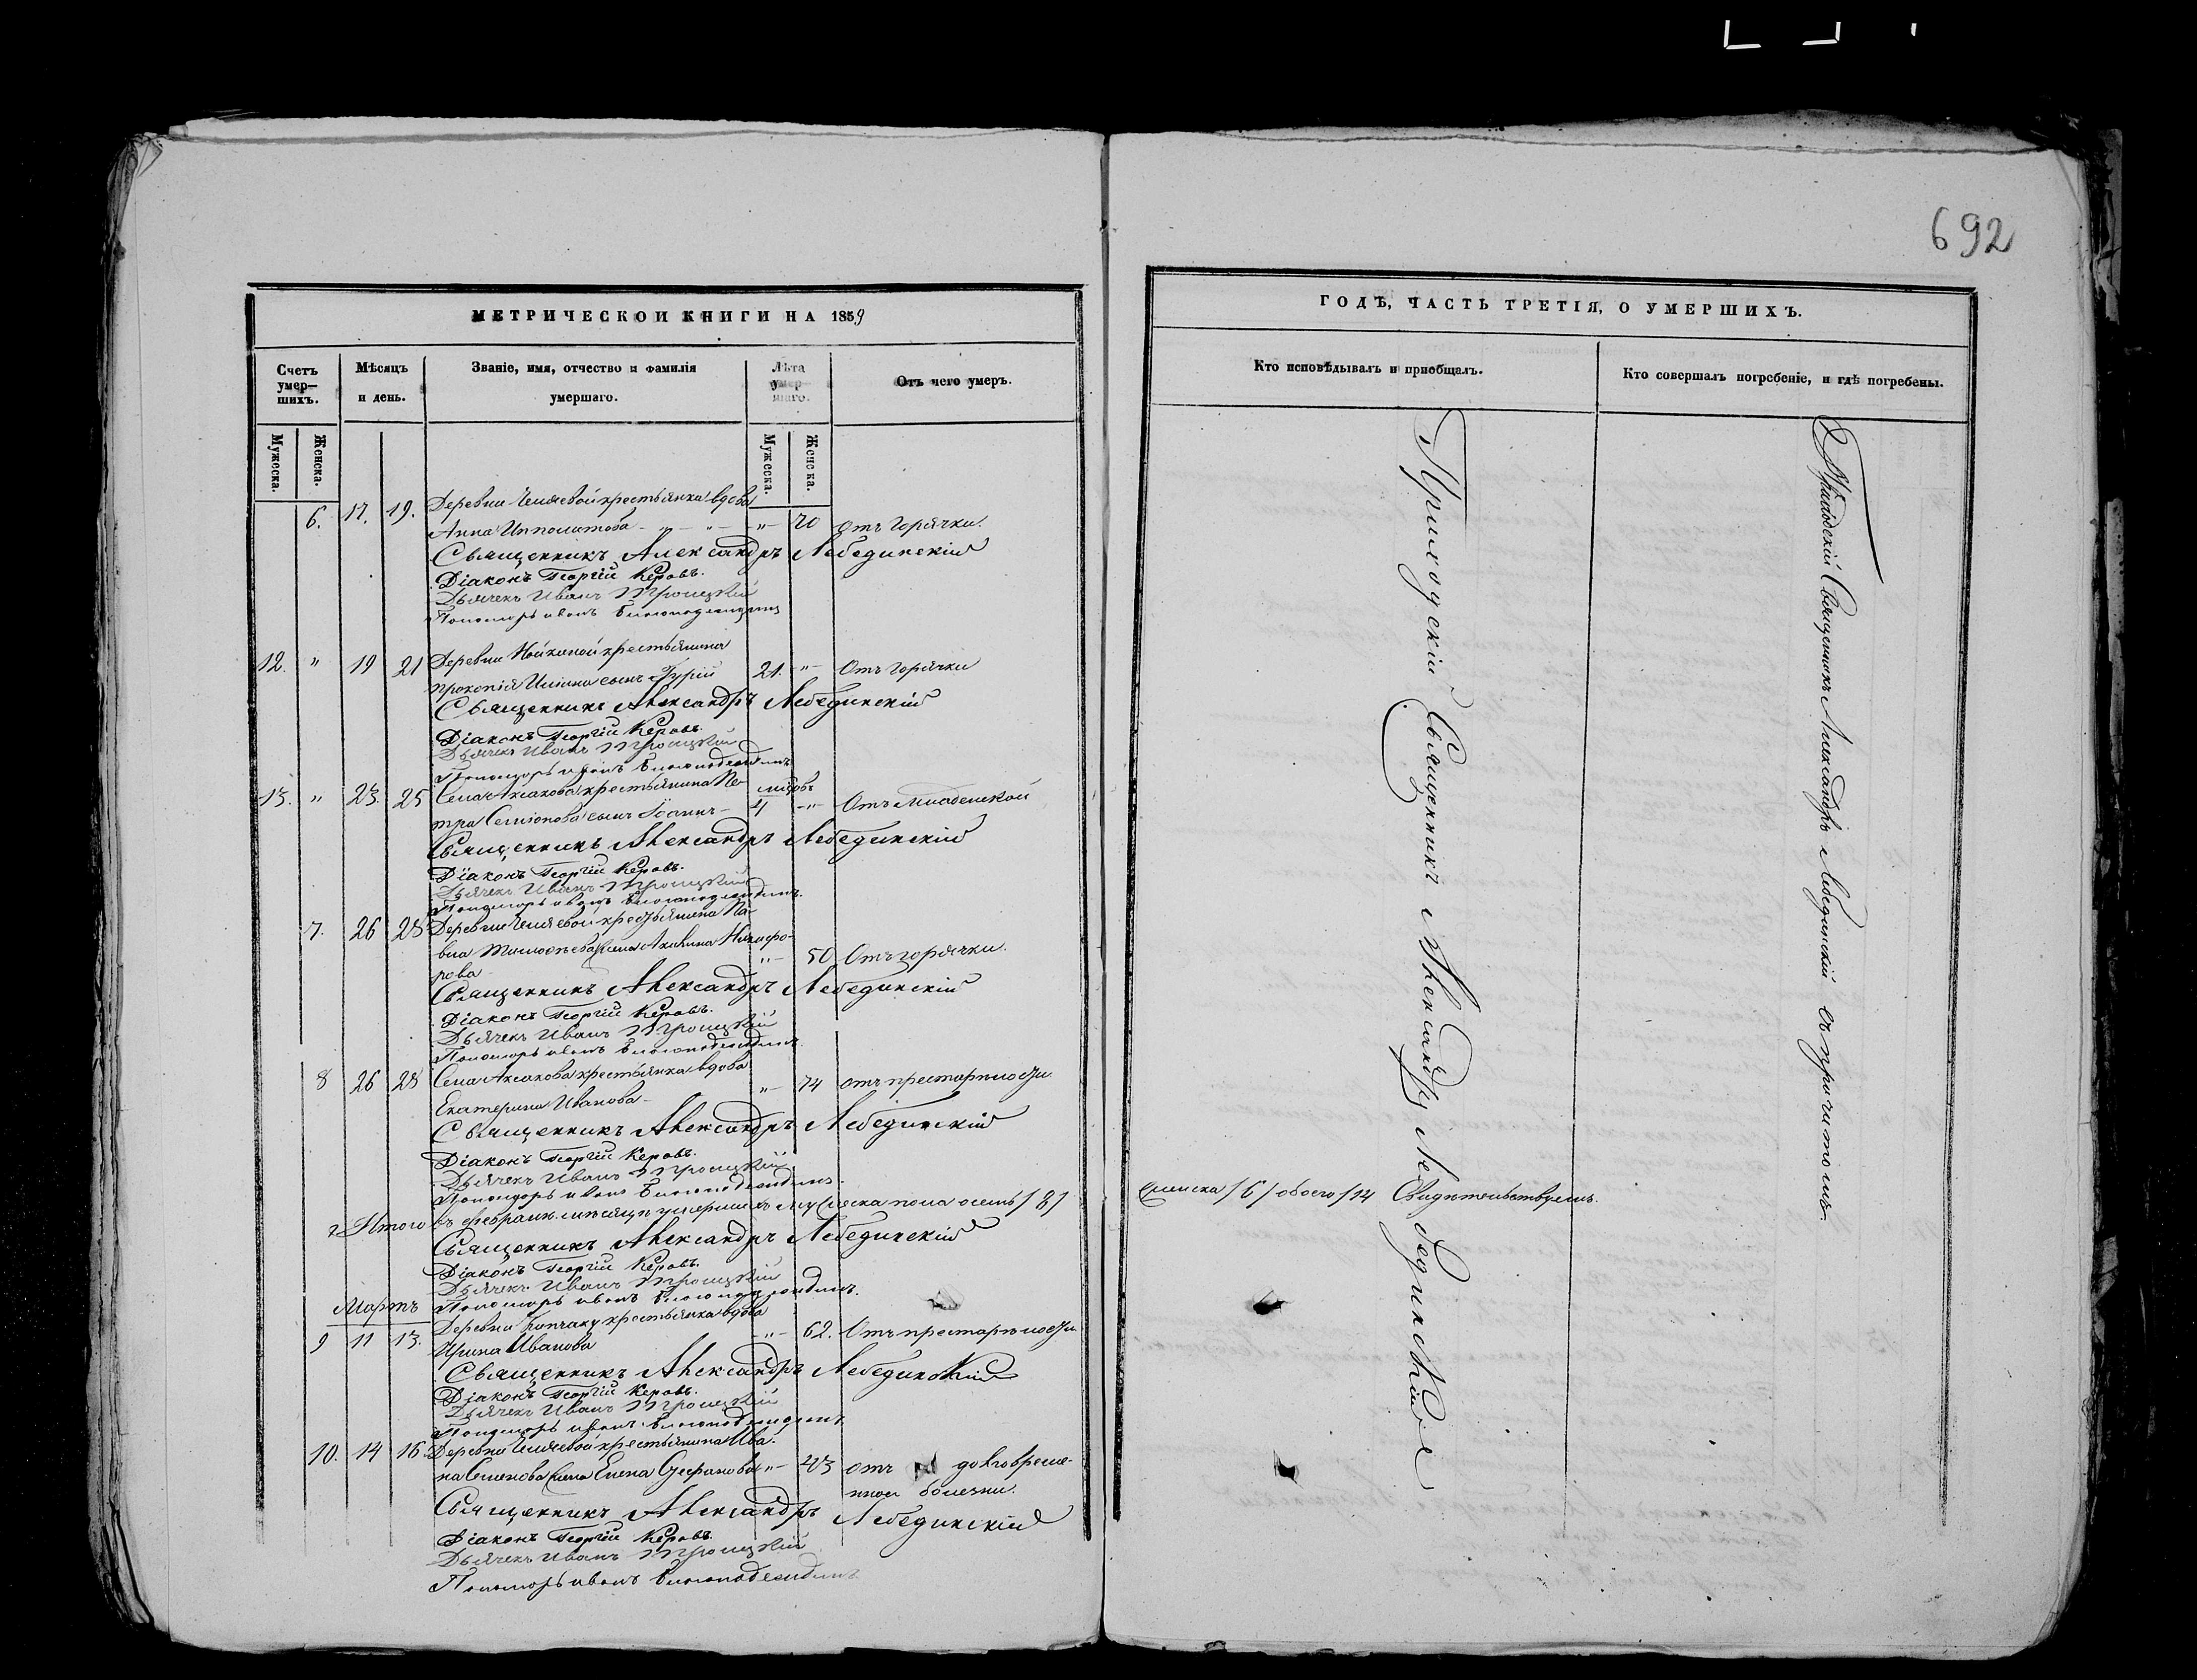 692
МЕТРИЧЕСКОЙ КНИГИ НА 1859
ГОДѢ, ЧАСТЬ ТРЕТІЯ, О УМЕРШИХЪ.
Счетъ умер-
шихъ.
Мѣсяцъ
и день.
Званіе, имя, отчество и фамилія
умершаго.
Лѣта
умер-
шаго.
Отъ чего умеръ.
Кто исповѣдывалъ и пріобщалъ.
Кто совершалъ погребеніе, и гдѣ погребены.
Мужеска.
Женска.
Мужеска.
Женска.
6. 17. 19. Деревни крестьянка вдова
Анна Ипполитова - „ - „ - „ - 70 Отъ горячки.
Священникъ Александръ Лебединскій
Діаконъ Георгій Керовъ.
Дьячекъ Иванъ Троицкій
Пономарь
12. „ 19 21 Деревни крестьянина
Прокопія сынъ Гурій 21. „ Отъ горячки
Священникъ Александръ Лебединскій
Діаконъ Георгій Керовъ.
Дьячекъ Иванъ Троицкій
Пономарь
13. „ 23. 25 Села Аксакова крестьянина Пе-
тра Семіонова сынъ Іоаннъ - 4 „ Отъ младенской
Священникъ Александръ Лебединскій
Діаконъ Георгій Керовъ.
Дьячекъ Иванъ Троицкій
Пономарь
7. 26 28 Деревни крестьянина Па-
вла Тимоѳеева жена Акилина Никифо-
рова „ 50 Отъ горячки.
Священникъ Александръ Лебединскій
Діаконъ Георгій Керовъ.
Дьячекъ Иванъ Троицкій
Пономарь
8 26 28 Села Аксакова крестьянка вдова
Екатерина Иванова - „ 74 отъ престарѣлости.
Священникъ Александръ Лебединскій
Діаконъ Георгій Керовъ.
Дьячекъ Иванъ Троицкій
Пономарь
Итого въ февралѣ мѣсяцѣ умершихъ мужеска пола осемь /8/
женска /6/ обоего /14 Свидѣтельствуемъ.
Священникъ Александръ Лебединскій
Діаконъ Георгій Керовъ.
Дьячекъ Иванъ Троицкій
Пономарь
Мартъ
9 11 13. Деревни крестьянка вдова
Ирина Иванова „ 62. Отъ престарѣлости
Священникъ Александръ Лебединскій
Діаконъ Георгій Керовъ.
Дьячекъ Иванъ Троицкій
Пономарь
10. 14 16. Деревни крестьянина Ива-
на Семенова жена Елена Стефанова „ 43 отъ долговреме-
нной болезни.
Священникъ Александръ Лебединскій
Діаконъ Георгій Керовъ.
Дьячекъ Иванъ Троицкій
Пономарь
Приходскій Священникъ Александръ Лебединскій
Приходскій Священникъ Александръ Лебединскій съ причтомъ.